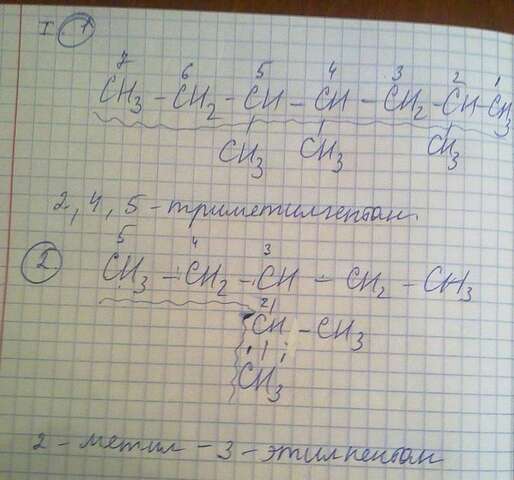 I 1
7 6 5 4 3 2 1
CH3 - CH2 - CH - CH - CH2 - CH - CH3
CH3 CH3 CH3
2,4,5-триметилгептан.
2
5 4 3
CH3 - CH2 - CH - CH2 - CH3
2
CH - CH3
1
CH3
2-метил-3-этилпентан